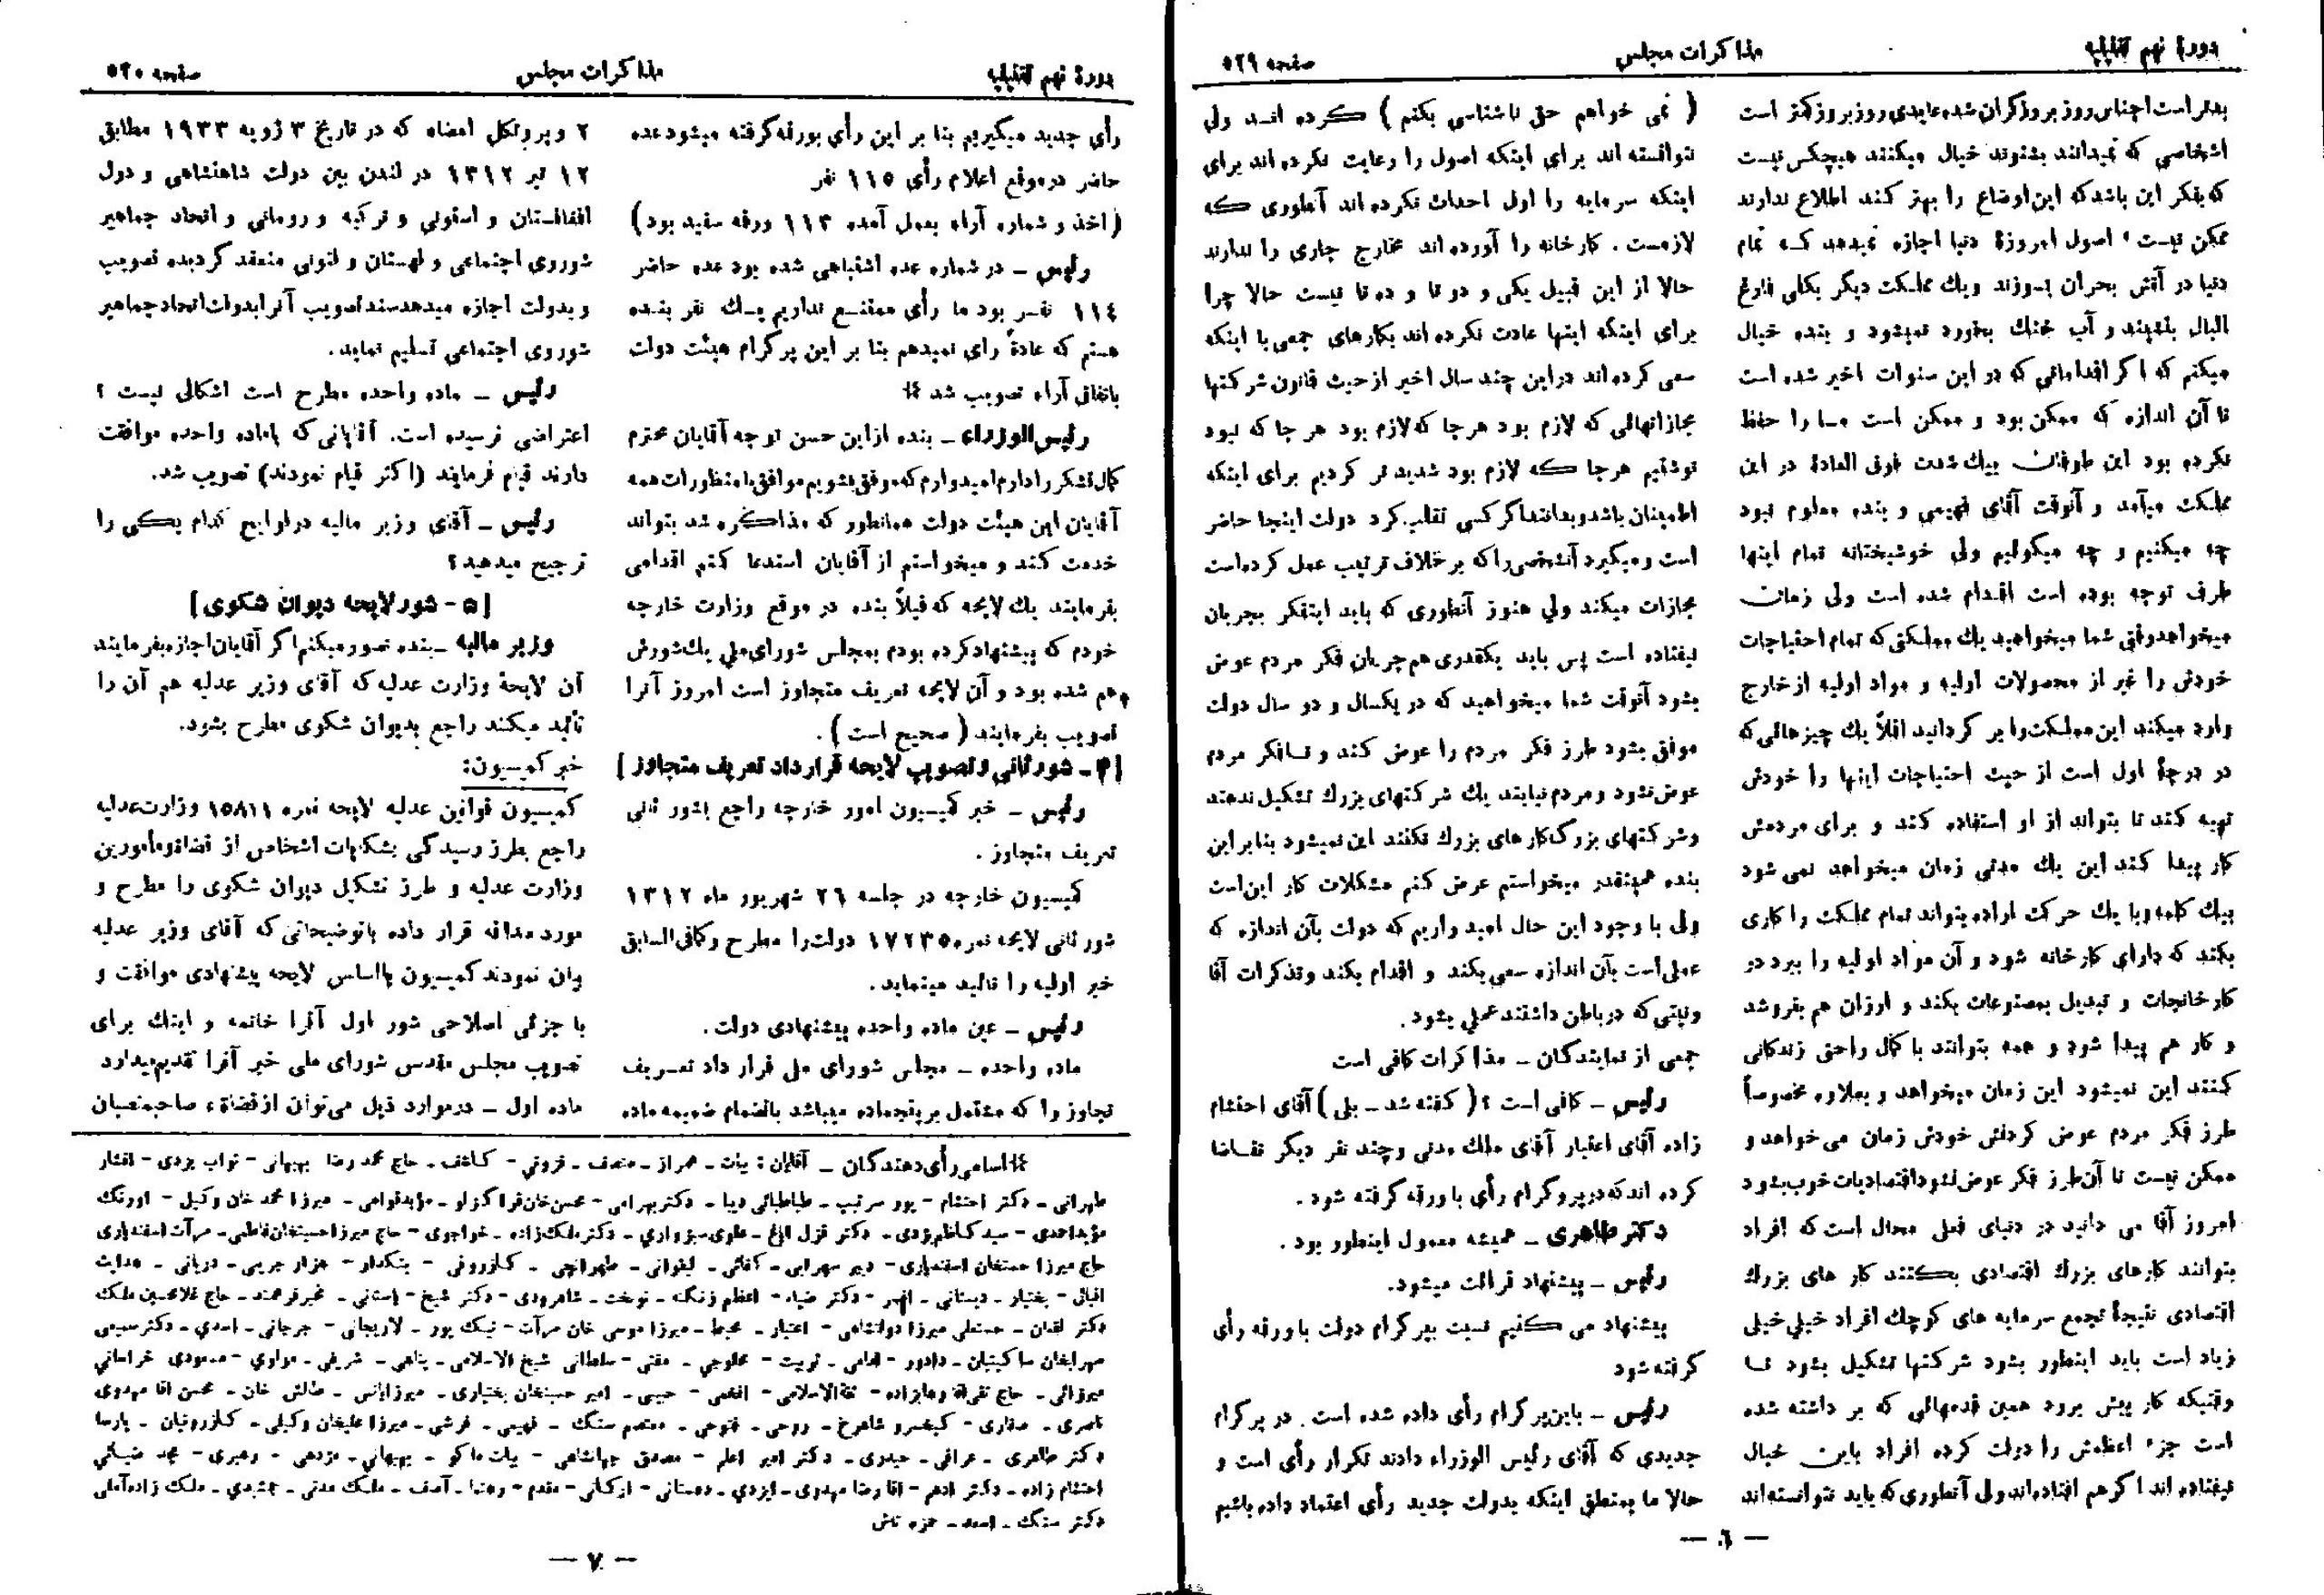 دورهٔ نهم تقنینیه
مذاکرات مجلس
صفحه ۵۲۹
بدتر است اجناس روز بروز گران شده عایدی روز بروز کمتر است
اشخاصی که نمیدانند بشنوند خیال میکنند هیچکس نیست
که بفکر این باشد که این اوضاع را بهتر کند اطلاع ندارند
ممکن نیست، اصول امروزهٔ دنیا اجازه نمیدهد که تمام
دنیا در آتش بحران بسوزند ویك مملکت دیگر بکلی فارغ
البال بنشیند و آب خنك بخورد نمیشود و بنده خیال
میکنم که اگر اقداماتی که در این سنوات اخیر شده است
تا آن اندازه که ممکن بود و ممکن است ما را حفظ
نکرده بود این طوفان بیك شدت فوق العادهٔ در این
مملکت میآمد و آنوقت آقای فهیمی و بنده معلوم نبود
چه میکنیم و چه میگوئیم ولی خوشبختانه تمام اینها
طرف توجه بوده است اقدام شده است ولی زمان
میخواهد وقتی شما میخواهید یك مملکتی که تمام احتیاجات
خودش را غیر از محصولات اولیه و مواد اولیه از خارج
وارد میکند این مملکت را بر گردانید اقلاً یك چیزهائی که
در درجهٔ اول است از حیث احتیاجات اینها را خودش
تهیه کند تا بتواند از او استفاده کند و برای مردمش
کار پیدا کند این یك مدتی زمان میخواهد نمی شود
بیك کلمه و با یك حرکت اراده بتواند تمام مملکت را کاری
بکند که دارای کارخانه شود و آن مواد اولیه را ببرد در
کارخانجات و تبدیل بمصنوعات بکند و ارزان هم بفروشد
و کار هم پیدا شود و همه بتوانند با کمال راحتی زندگانی
کنند این نمیشود این زمان میخواهد و بعلاوه مخصوصاً
طرز فکر مردم عوض کردنش خودش زمان می خواهد و
ممکن نیست تا آن طرز فکر عوض نشود اقتصادیات خوب بشود
امروز آقا می دانید در دنیای فعلی محال است که افراد
بتوانند کارهای بزرك اقتصادی بکنند کار های بزرك
اقتصادی نتیجهٔ تجمع سرمایه های کوچك افراد خیلی خیلی
زیاد است باید اینطور بشود شرکتها تشکیل بشود تا
وقتیکه کار پیش برود همین قدمهائی که بر داشته شده
است جزء اعظمش را دولت کرده افراد باین خیال
نیفتاده اند اگر هم افتاده اند ولی آنطوری که باید نتوانسته اند
( نمی خواهم حق ناشناسی بکنم ) کرده اند ولی
نتوانسته اند برای اینکه اصول را رعایت نکرده اند برای
اینکه سرمایه را اول احداث نکرده اند آنطوری که
لازمست . کارخانه را آورده اند مخارج جاری را ندارند
حالا از این قبیل یکی و دو تا و ده تا نیست حالا چرا
برای اینکه اینها عادت نکرده اند بکارهای جمعی با اینکه
سعی کرده اند در این چند سال اخیر از حیث قانون شرکتها
مجازاتهائی که لازم بود هرجا که لازم بود هر جا که نبود
نوشتیم هرجا که لازم بود شدید تر کردیم برای اینکه
اطمینان باشد و بدانند اگر کسی تقلب کرد دولت اینجا حاضر
است و میگیرد آنشخصی را که بر خلاف ترتیب عمل کرده است
مجازات میکند ولی هنوز آنطوری که باید اینفکر بجریان
نیفتاده است پس باید یکقدری هم جریان فکر مردم عوض
بشود آنوقت شما میخواهید که در یکسال و دو سال دولت
موفق بشود طرز فکر مردم را عوض کند و تا فکر مردم
عوض نشود و مردم نیایند یك شرکتهای بزرك تشکیل ندهند
و شرکتهای بزرگ کار های بزرك نکنند این نمیشود بنابراین
بنده همینقدر میخواستم عرض کنم مشکلات کار این است
ولی با وجود این حال امید واریم که دولت بآن اندازه که
عملی است بآن اندازه سعی بکند و اقدام بکند و تذکرات آقا
و نیتی که در باطن داشتند عملی بشود .
جمعی از نمایندگان ـ مذاکرات کافی است
رئیس ـ کافی است ؟ ( گفته شد ـ بلی ) آقای احتشام
زاده آقای اعتبار آقای ملك مدنی و چند نفر دیگر تقاضا
کرده اند که در پروگرام رأی با ورقه گرفته شود .
دکتر طاهری ـ همیشه معمول اینطور بود .
رئیس ـ پیشنهاد قرائت میشود.
پیشنهاد می کنیم نسبت بپرگرام دولت با ورقه رأی
گرفته شود
رئیس ـ باین پرگرام رأی داده شده است . در پرگرام
جدیدی که آقای رئیس الوزراء دادند تکرار رأی است و
حالا ما بمنطق اینکه بدولت جدید رأی اعتماد داده باشیم
— ٦ —
دورهٔ نهم تقنینیه
مذاکرات مجلس
صفحه ۵۳۰
رأی جدید میگیریم بنا بر این رأی بورقه گرفته میشود عده
حاضر در موقع اعلام رأی ۱۱۵ نفر
(اخذ و شماره آراء بعمل آمده ۱۱۳ ورقه سفید بود)
رئیس ـ در شماره عده اشتباهی شده بود عده حاضر
۱۱٤ نفر بود ما رأی ممتنع نداریم یك نفر بنده
هستم که عادةً رای نمیدهم بنا بر این پرگرام هیئت دولت
باتفاق آراء تصویب شد #
رئیس الوزراء ـ بنده از این حسن توجه آقایان محترم
کمال تشکر را دارم امیدوارم که موفق بشویم موافق با منظورات همه
آقایان این هیئت دولت همانطور که مذاکره شد بتواند
خدمت کند و میخواستم از آقایان استدعا کنم اقدامی
بفرمایند یك لایحه که قبلاً بنده در موقع وزارت خارجه
خودم که پیشنهاد کرده بودم بمجلس شورای ملی یك شورش
هم شده بود و آن لایحه تعریف متجاوز است امروز آنرا
تصویب بفرمایند ( صحیح است ) .
[ ۴ ـ شور ثانی و تصویب لایحه قرارداد تعریف متجاوز ]
رئیس ـ خبر کمیسیون امور خارجه راجع بشور ثانی
تعریف متجاوز .
کمیسیون خارجه در جلسه ۲٦ شهریور ماه ۱۳۱۲
شور ثانی لایحه نمره ۱۷۲۳۵ دولت را مطرح و کمافی السابق
خبر اولیه را تائید مینماید.
رئیس ـ عین ماده واحده پیشنهادی دولت.
ماده واحده ـ مجلس شورای ملی قرار داد تعریف
تجاوز را که مشتمل بر پنجماده میباشد بانضمام ضمیمه ماده
۲ و پروتکل امضاء که در تاریخ ۳ ژویه ۱۹۳۳ مطابق
۱۲ تیر ۱۳۱۲ در لندن بین دولت شاهنشاهی و دول
افغانستان و استونی و ترکیه و رومانی و اتحاد جماهیر
شوروی اجتماعی و لهستان و لتونی منعقد گردیده تصویب
و بدولت اجازه میدهد سند تصویب آنرا بدولت اتحاد جماهیر
شوروی اجتماعی تسلیم نماید.
رئیس ـ ماده واحده مطرح است اشکالی نیست ؟
اعتراضی نرسیده است. آقایانی که بماده واحده موافقت
دارند قیام فرمایند (اکثر قیام نمودند) تصویب شد.
رئیس ـ آقای وزیر مالیه در لوایح کدام یکی را
ترجیح میدهید؟
[ ۵ - شور لایحه دیوان شکوی ]
وزیر مالیه ـ بنده تصور میکنم اگر آقایان اجازه بفرمایند
آن لایحهٔ وزارت عدلیه که آقای وزیر عدلیه هم آن را
تأئید میکند راجع بدیوان شکوی مطرح بشود.
خبر کمیسیون:
کمیسیون قوانین عدلیه لایحه نمره ۱۵۸۱۱ وزارت عدلیه
راجع بطرز رسیدگی بشکایات اشخاص از قضات و مأمورین
وزارت عدلیه و طرز تشکیل دیوان شکوی را مطرح و
مورد مداقه قرار داده با توضیحاتی که آقای وزیر عدلیه
بیان نمودند کمیسیون با اساس لایحه پیشنهادی موافقت و
با جزئی اصلاحی شور اول آنرا خاتمه و اینك برای
تصویب مجلس مقدس شورای ملی خبر آنرا تقدیم میدارد
ماده اول ـ در موارد ذیل می توان از قضاة و صاحبمنصبان
# اسامی رأی دهندگان ـ آقایان : بیات ـ همراز ـ منصف ـ قزوینی ـ کاشف ـ حاج محمد رضا بهبهانی ـ نواب یزدی ـ افشار
طهرانی ـ دکتر احتشام ـ پور سرتیپ ـ طباطبائی دیبا ـ دکتر بهرامی ـ محسن خان قراگزلو ـ مؤید قوامی ـ میرزا محمد خان وکیل ـ اورنگ
مؤید احمدی ـ سید کاظم یزدی ـ دکتر قزل ایاغ ـ علوی سبزواری ـ دکتر ملك زاده ـ خواجوی ـ حاج میرزا حسینخان فاطمی ـ مرآت اسفندیاری
حاج میرزا حسنخان اسفندیاری ـ دبیر سهرابی ـ کفائی ـ لیقوانی ـ طهرانچی ـ کازرونی ـ بنکدار ـ هزار جریبی ـ دربانی ـ هدایت
اقبال ـ بختیار ـ دبستانی ـ افسر ـ دکتر ضیاء ـ اعظم زنگنه ـ نوبخت ـ شاهرودی ـ دکتر شیخ ـ باستانی ـ مخبر فرهمند ـ حاج غلامحسین ملك
دکتر لقمان ـ حسنعلی میرزا دولتشاهی ـ اعتبار ـ محیط ـ میرزا موسی خان مرآت ـ نیك پور ـ لاریجانی ـ جرجانی ـ اسدی ـ دکتر سمیعی
سهرابخان ساگینیان ـ دادور ـ امامی ـ تربیت ـ مخلوجی ـ مفتی ـ سلطانی شیخ الاسلامی ـ پناهی ـ شریفی ـ مولوی ـ مسعودی خراسانی
میرزائی ـ حاج تقی آقا وهابزاده ـ ثقة الاسلامی ـ افخمی ـ حبیبی ـ امیر حسینخان بختیاری ـ میرزایانس ـ طالش خان ـ محسن آقا مهدوی
ناصری ـ صفاری ـ کیخسرو شاهرخ ـ روحی ـ فتوحی ـ معتصم سنگ ـ فهیمی ـ قرشی ـ میرزا علیخان وکیلی ـ کازرونیان ـ پارسا
دکتر طاهری ـ عراقی ـ حیدری ـ دکتر امیر اعلم ـ مصدق جهانشاهی ـ بیات ماکو ـ بهبهانی ـ مژدهی ـ رهبری ـ محمد ضیائی
احتشام زاده ـ دکتر ادهم ـ آقا رضا مهدوی ـ ایزدی ـ دهستانی ـ ارگانی ـ مقدم ـ رهنما ـ آصف ـ ملك مدنی ـ جمشیدی ـ ملك زاده آملی
دکتر سنگ ـ اسعد ـ حمزه تاش
— ۷ —